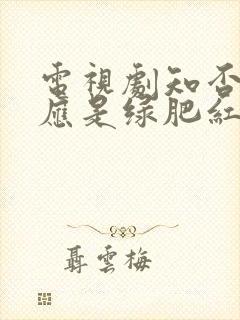 電視劇知否
應是绿肥紅
聶雲梅